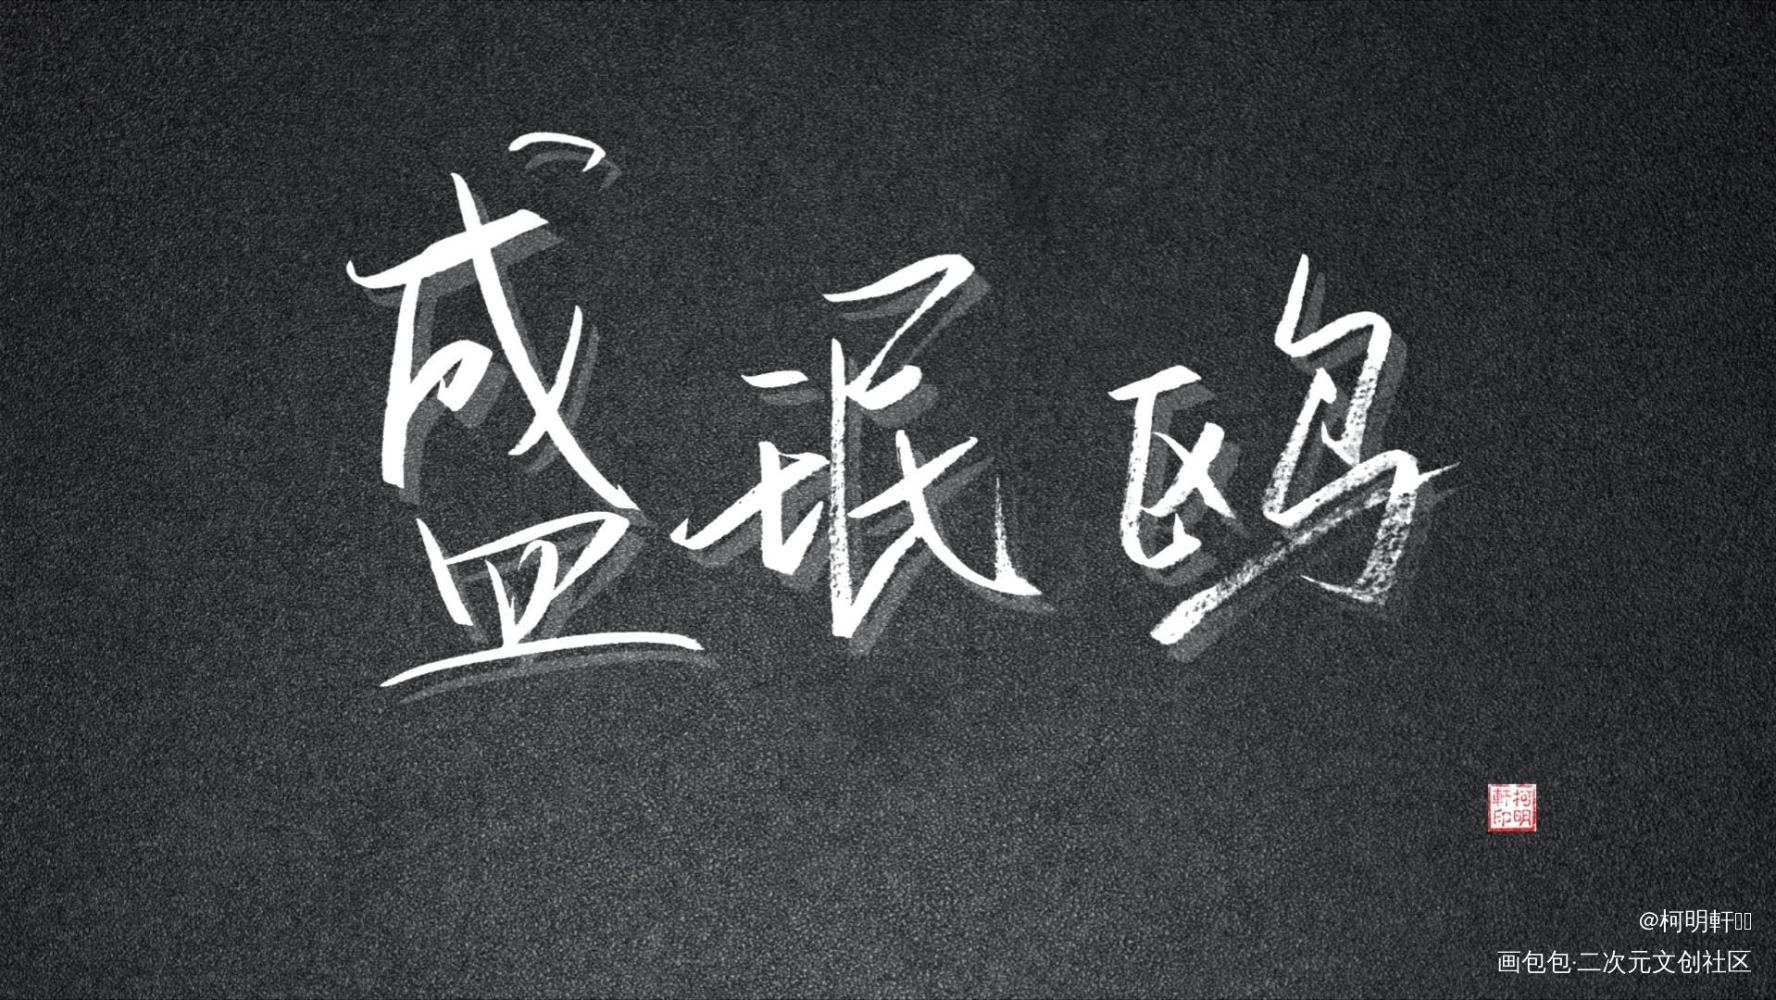 盛珉鸥
柯明
軒印
@柯明軒
画包包·二次元文创社区